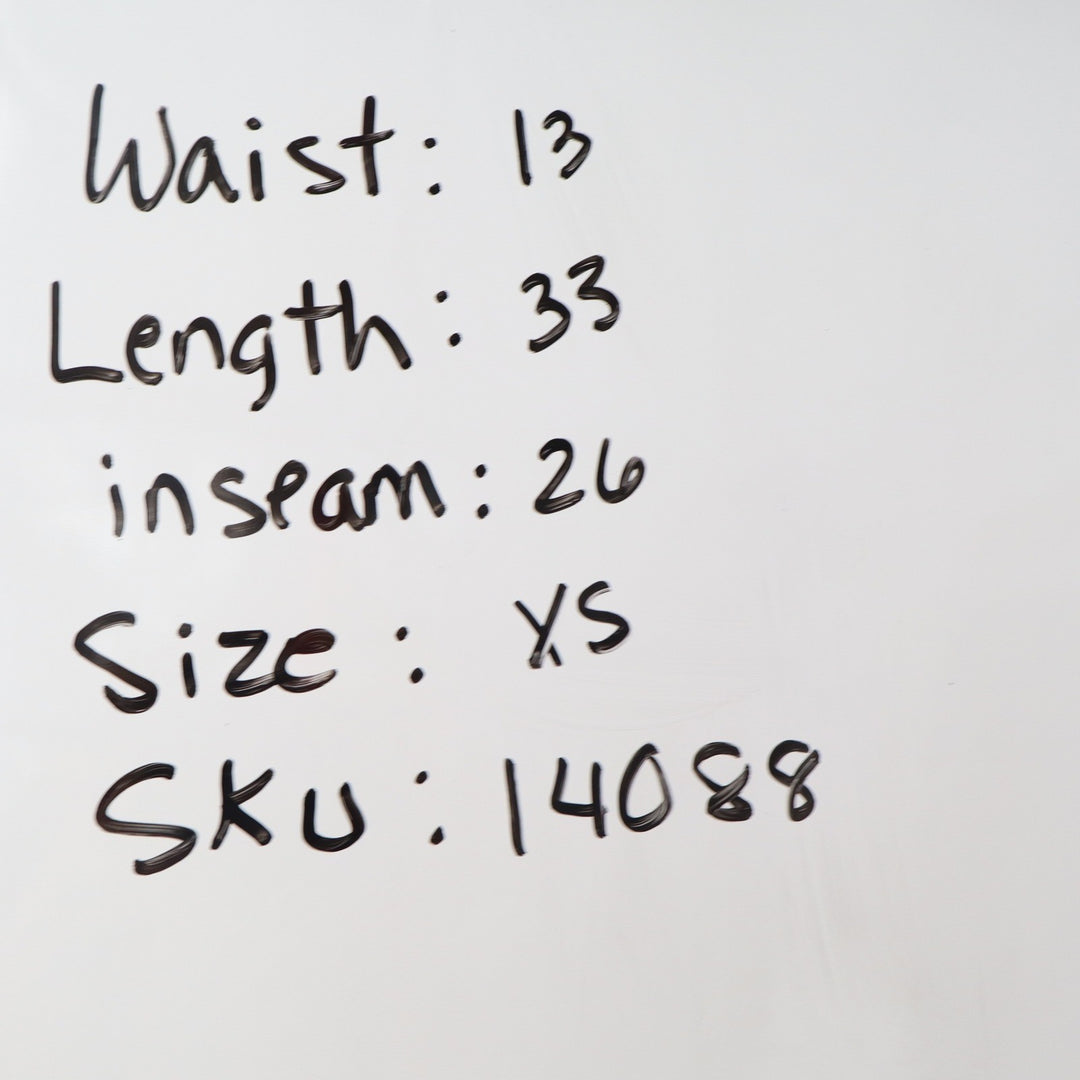 Waist: 13
Length: 33
inseam: 26
Size: XS
SKU: 14088